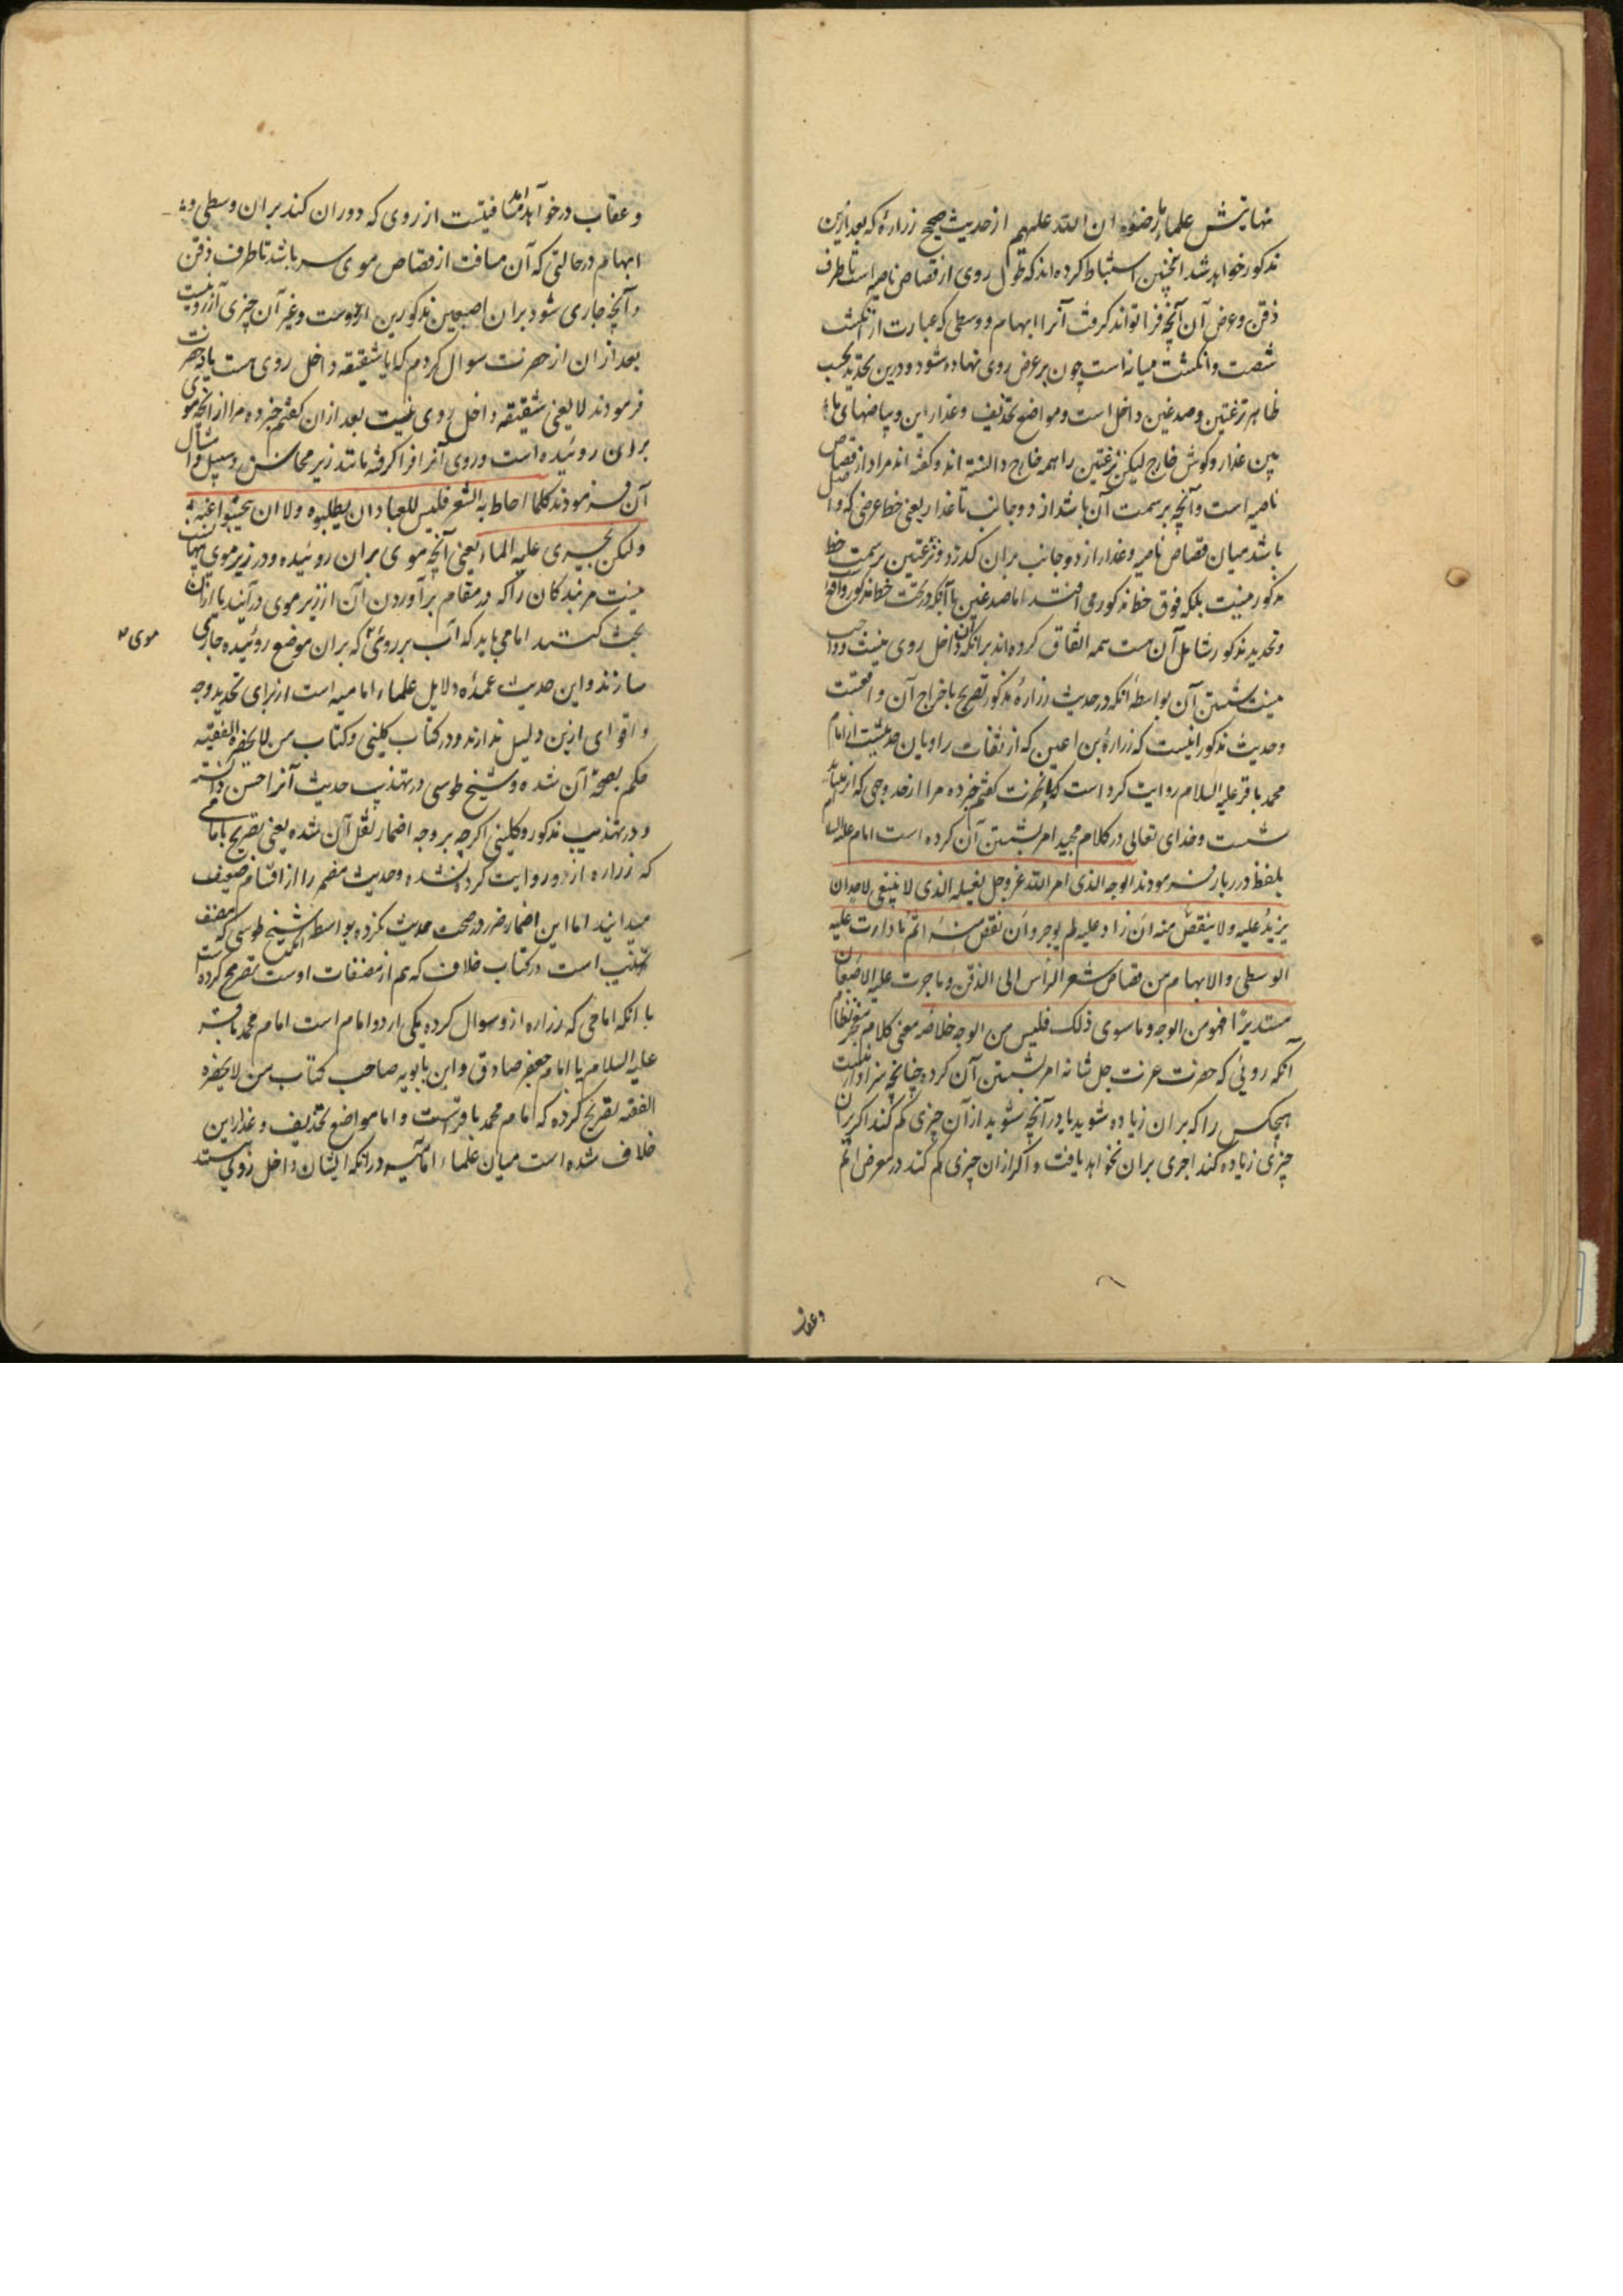 نهایتش علماء رضوان الله علیهم از حدیث صحیح زراره که بعد ازین
مذکور خواهد شد اینچنین استنباط کرده‌اند که طول روی از قصاص ناصیه است تا طرف
ذقن و عرض آن آنچه فرا تواند گرفت آنرا ابهام و وسطی که عبارت از انگشت
شصت و انگشت میانه است چون بر عرض روی نهاده شود و درین تحدید بحسب
ظاهر نزعتین و صدغین داخل است و مواضع تحذیف و عذارین و بیاضهای ما
بین عذار و گوش خارج لیکن نزعتین را همه خارج دانسته‌اند و گفته‌اند مراد از قصاص
ناصیه است و آنچه بر سمت آن باشد از دو جانب تا عذار یعنی خط عرضی که واصل
باشد میان قصاص ناصیه و عذار از دو جانب بران گذرد و نزعتین بر سمت خط
مذکور نیست بلکه فوق خط مذکور می افتد اما صدغین با آنکه در تحت خط مذکور واقع
و تحدید مذکور شامل آن هست همه اتفاق کرده‌اند برانکه آن داخل روی نیست و واجب
نیست شستن آن بواسطهٔ آنکه در حدیث زرارهٔ مذکور تصریح باخراج آن واقعست
و حدیث مذکور اینست که زرارهٔ بن اعین که از ثقات راویان حدیثست از امام
محمد باقر علیه السلام روایت کرده است که بآنحضرت گفتم خبر ده مرا از حد وجهی که از
شست و خدای تعالی در کلام مجید امر بشستن آن کرده است امام علیه السلام
بلفظ درربار فرمودند الوجه الذی امر الله عز وجل بغسله الذی لا ینبغی لاحد ان
یزید علیه ولا ینقص منه ان زاد علیه لم یوجر وان نقص منه اثم ما دارت علیه
الوسطی والابهام من قصاص شعر الرأس الی الذقن وما جرت علیه الاصبعان
مستدیرًا فهو من الوجه وما سوی ذلک فلیس من الوجه خلاصه معنی کلام
آنکه روئی که حضرت عزت جل شانه امر بشستن آن کرده چنانچه سزاوار نیست
هیچکس را که بران زیاده شوید یا در آنچه شوید از آن چیزی کم کند اگر بران
چیزی زیاده کند اجری بران نخواهد یافت و اگر ازان چیزی کم کند در معرض اثم
وعقاب
و عقاب در خواهد آمد مسافتیست از روی که دوران کند بران وسطی و
ابهام در حالتی که آن مسافت از قصاص موی سر باشد تا طرف ذقن
و آنچه جاری شود بران اصبعین مذکورین از روست و غیر آن چیزی از رو نیست
بعد ازان از حضرت سوال کردم که آیا شقیقه داخل روی هست یا نه حضرت
فرمودند لا یعنی شقیقه داخل روی نیست بعد ازان گفتم خبر ده مرا از آنچه موی
بران روئیده است و روی آنرا فرا گرفته مانند زیر محاسن و سبیل و امثال
آن فرمودند کلما احاط به الشعر فلیس للعباد ان یطلبوه ولا ان یبحثوا عنه
ولکن یجری علیه الماء یعنی آنچه موی بران روئیده و در زیر موی پنهانست
نیست مر بندگان را که در مقام برآوردن آن از زیر موی درآیند یا ازان
بحث کنند اما می باید که آب بر روئی که بران موضع روئیده جاری
موی
سازند و این حدیث عمدهٔ دلایل علماء امامیه است از برای تحدید وجه
و اقوای ازین دلیل ندارند و در کتاب کلینی و کتاب من لا یحضره الفقیه
حکم بصحة آن شده و شیخ طوسی در تهذیب حدیث آنرا حسن دانسته
و در تهذیب مذکور و کلینی اگرچه بر وجه اضمار نقل آن شده یعنی تصریح بامامی
که زراره ازو روایت کرده نشده و حدیث مضمر را از اقسام ضعیف
میدانند اما این اضمار ضرر در صحت حدیث نکرده بواسطه آنکه شیخ طوسی که مصنف
تهذیب است در کتاب خلاف که هم از مصنفات اوست تصریح کرده است
با آنکه امامی که زراره ازو سوال کرده یکی از دو امام است امام محمد باقر
علیه السلام یا امام جعفر صادق و ابن بابویه صاحب کتاب من لا یحضره
الفقه تصریح کرده که امام محمد باقرست و اما مواضع تحذیف و عذارین
خلاف شده است میان علماء امامیه در آنکه ایشان داخل روی هستند